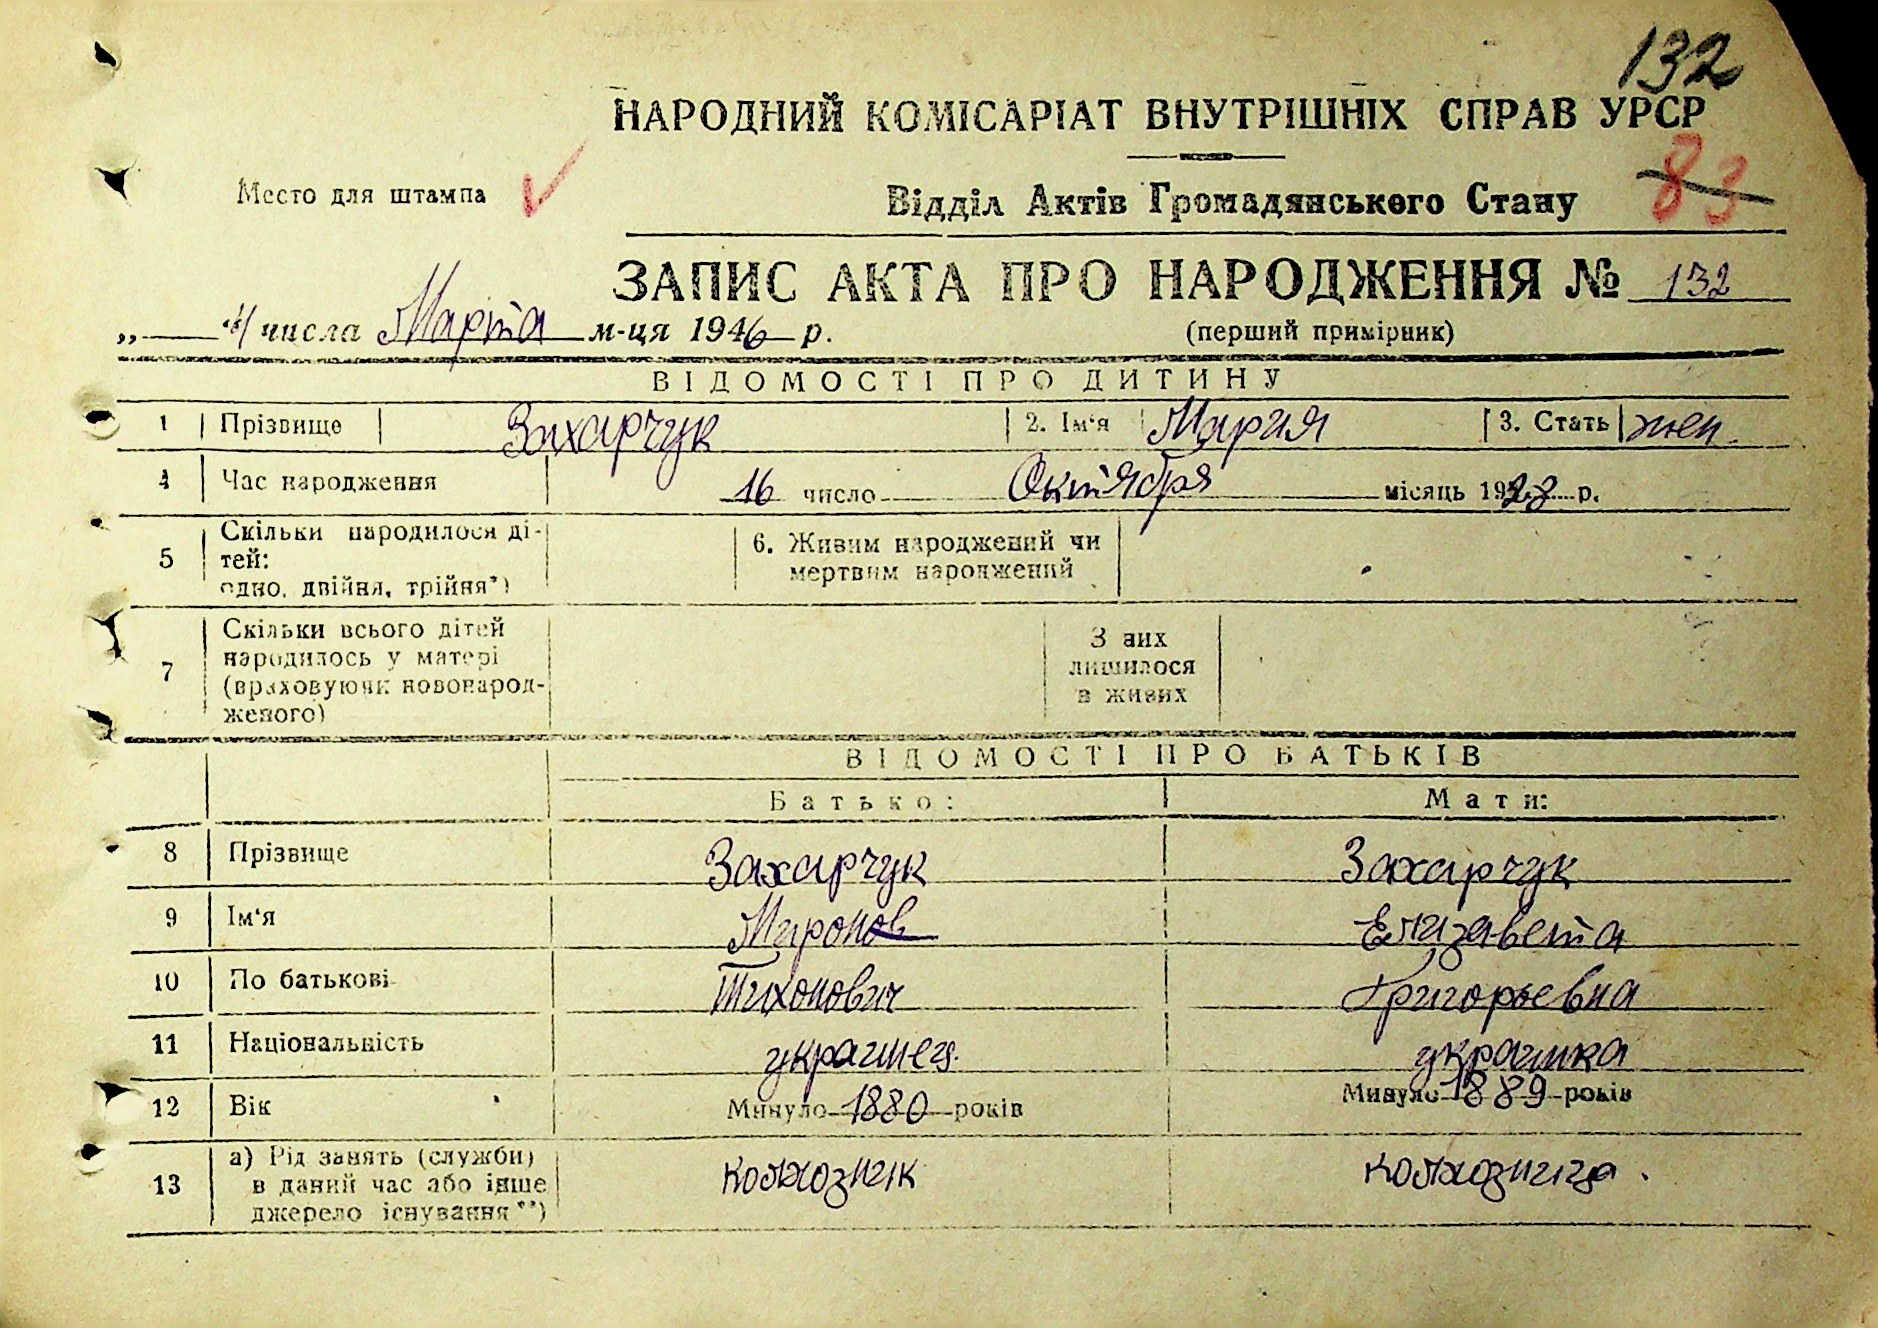 132
НАРОДНИЙ КОМІСАРІАТ ВНУТРІШНІХ СПРАВ УРСР
83
Место для штампа
Відділ Актів Громадянського Стану
ЗАПИС АКТА ПРО НАРОДЖЕННЯ № 132
„ числа Марта м-ця 1946 р.
(перший примірник)
ВІДОМОСТІ ПРО ДИТИНУ
1 Прізвище Захарчук 2. Ім'я Мария 3. Стать жен.
4 Час народження 16 число Октября місяць 1928 р.
5 Скільки народилося ді-
тей:
одно, двійня, трійня*)
6. Живим народжений чи
мертвим народжений
7 Скільки всього дітей
народилось у матері
(враховуючи новонарод-
женого)
З них
лишилося
в живих
ВІДОМОСТІ ПРО БАТЬКІВ
Батько: Мати:
8 Прізвище Захарчук Захарчук
9 Ім'я Миронов Елизавета
10 По батькові Тихонович Григорьевна
11 Національність украинец. украинка
12 Вік Минуло 1880 років Минуло 1889 років
13 а) Рід занять (служби)
в даний час або інше
джерело існування**)
колхозник колхозница.